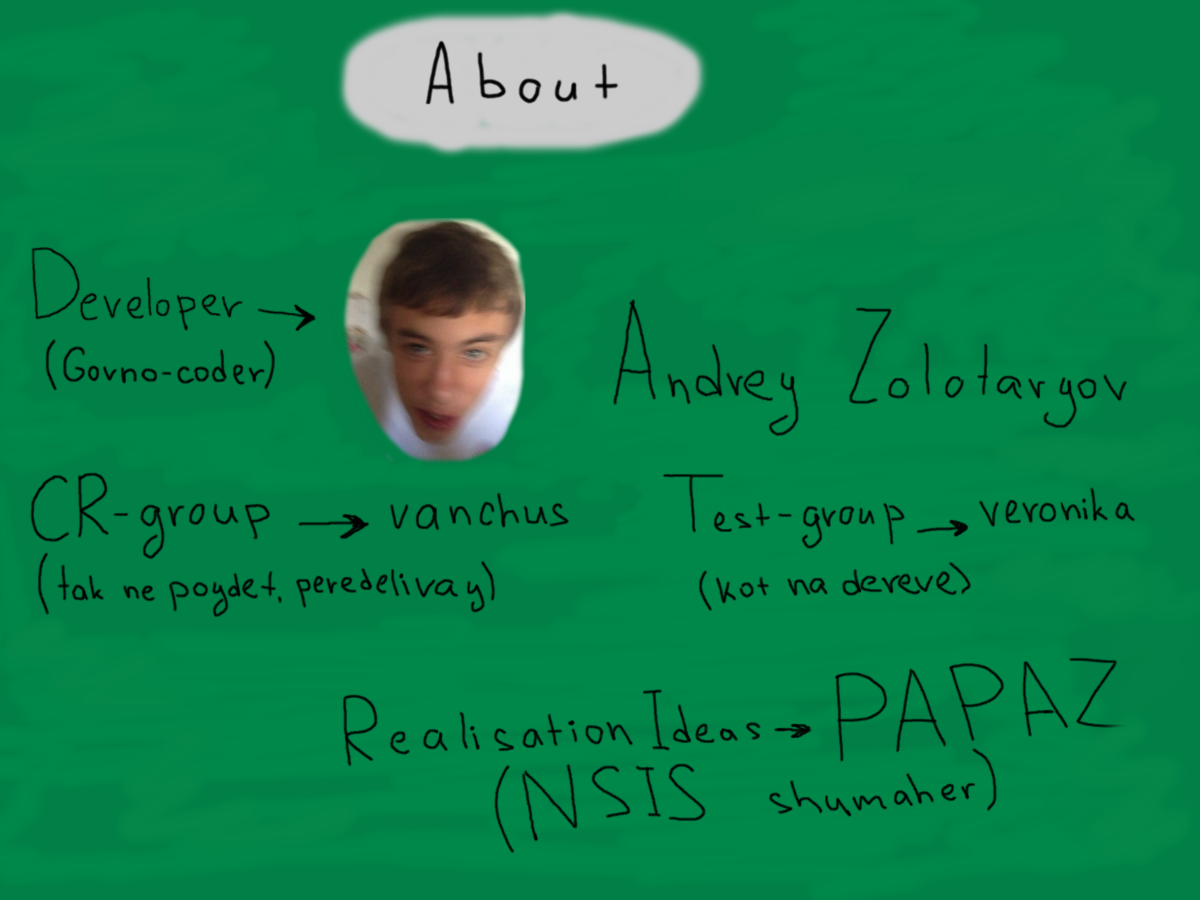 About
Developer →
(Govno-coder)
Andrey Zolotaryov
CR-group → vanchus
(tak ne poydet, peredelivay)
Test-group → veronika
(kot na dereve)
Realisation Ideas → PAPAZ
(NSIS shumaher)